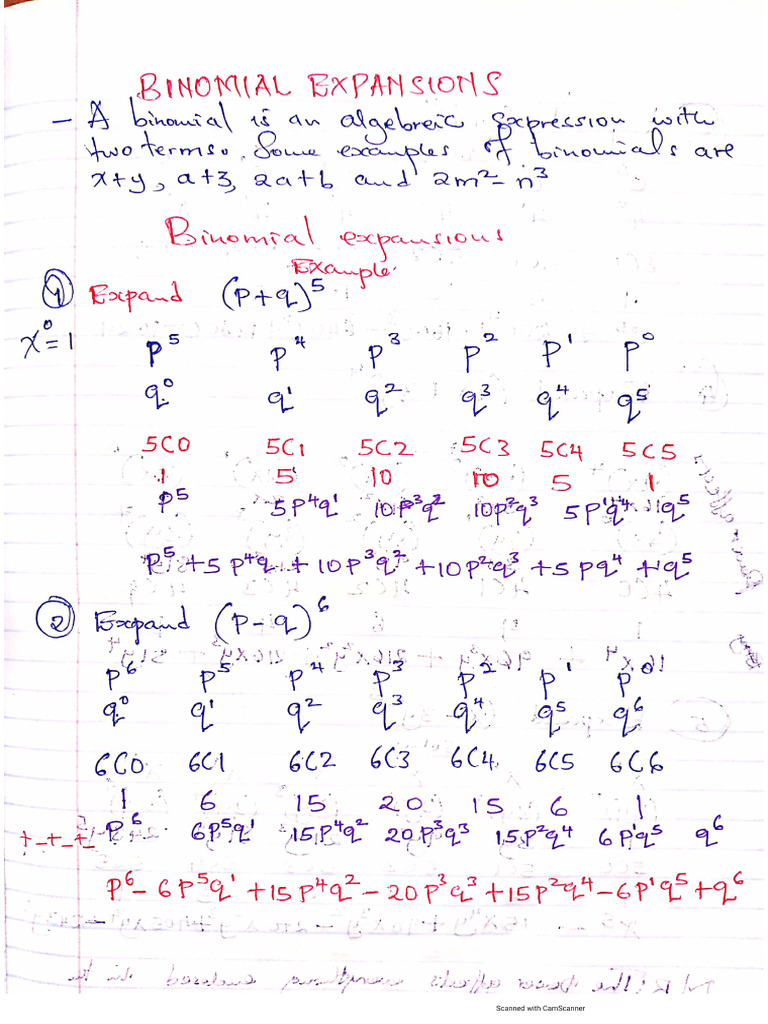 BINOMIAL EXPANSIONS
- A binomial is an algebreic expression with
two terms. Some examples of binomials are
x+y, a+3, 2a+b and 2m²-n³
Binomial expansions
Example.
① Expand (p+q)⁵
x⁰=1
p⁵ p⁴ p³ p² p¹ p⁰
q⁰ q¹ q² q³ q⁴ q⁵
5C0 5C1 5C2 5C3 5C4 5C5
1 5 10 10 5 1
p⁵ 5p⁴q¹ 10p³q² 10p²q³ 5p¹q⁴ 1q⁵
p⁵+5p⁴q+10p³q²+10p²q³+5pq⁴+1q⁵
② Expand (p-q)⁶
p⁶ p⁵ p⁴ p³ p² p¹ p⁰
q⁰ q¹ q² q³ q⁴ q⁵ q⁶
6C0 6C1 6C2 6C3 6C4 6C5 6C6
1 6 15 20 15 6 1
+-+-+- p⁶ 6p⁵q¹ 15p⁴q² 20p³q³ 15p²q⁴ 6p¹q⁵ q⁶
p⁶-6p⁵q¹+15p⁴q²-20p³q³+15p²q⁴-6p¹q⁵+q⁶
Scanned with CamScanner